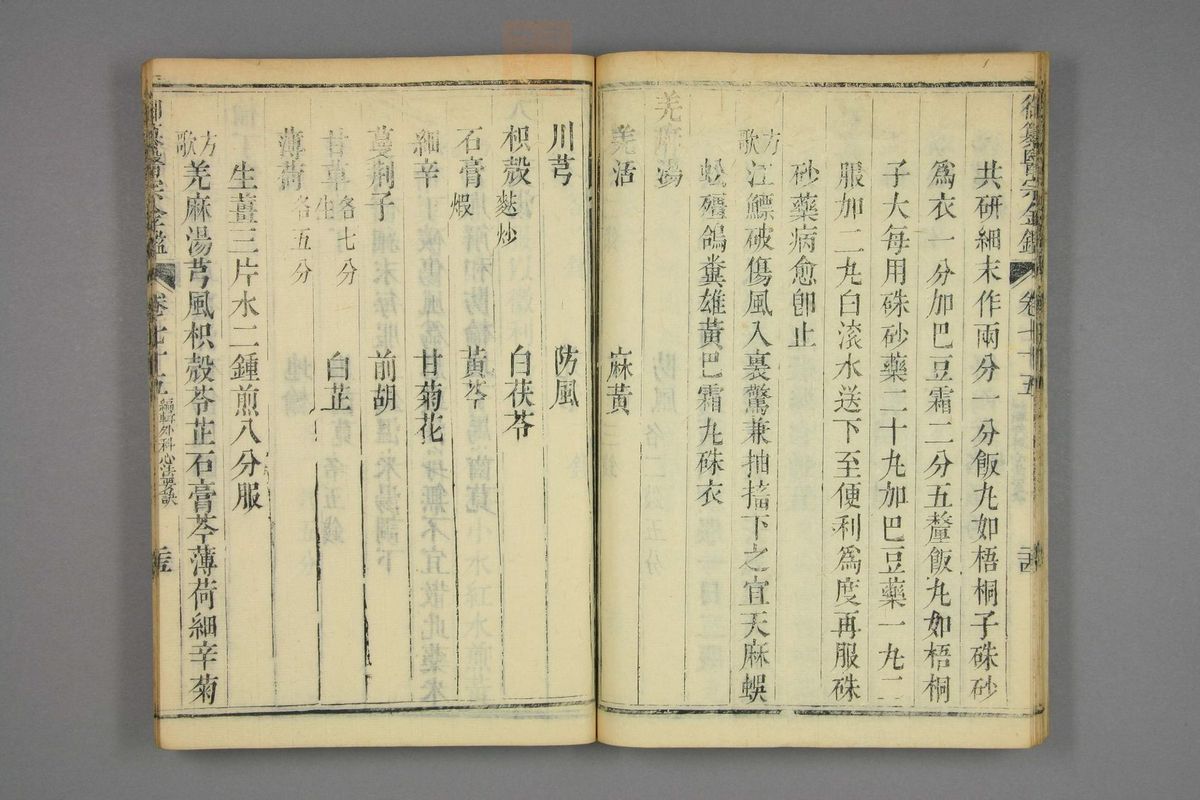 御纂醫宗金鑑
卷七十五
共研細末作兩分一分飯丸如梧桐子硃砂
爲衣一分加巴豆霜二分五釐飯丸如梧桐
子大每用硃砂藥二十丸加巴豆藥一丸二
服加二丸白滾水送下至便利爲度再服硃
砂藥病愈卽止
方歌
江鰾破傷風入裏驚兼抽搐下之宜天麻蜈
蚣殭鴿糞雄黃巴霜丸硃衣
羌麻湯
羌活　麻黃
川芎　防風
枳殼麩炒　白茯苓
石膏煅　黃芩
細辛　甘菊花
蔓荊子　前胡
甘草生各七分　白芷
薄荷各五分
生薑三片水二鍾煎八分服
方歌
羌麻湯芎風枳殼苓芷石膏芩薄荷細辛菊
御纂醫宗金鑑
卷七十五
編輯外科心法要訣